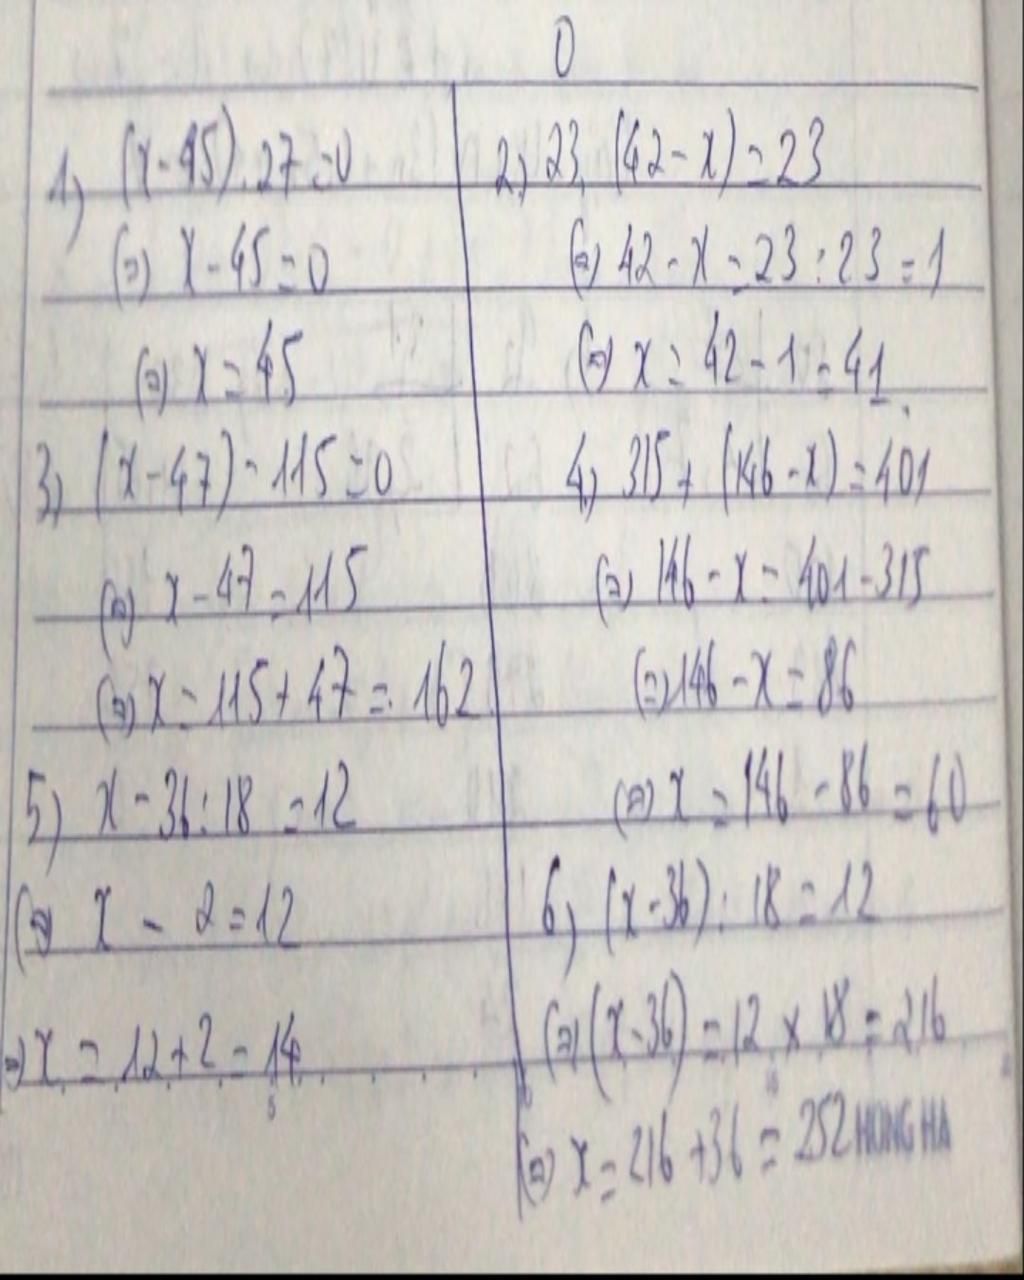 0
1) (x-45).27=0
(=) x-45=0
(=) x=45
2) 23.(42-x)=23
(=) 42-x=23:23=1
(=) x=42-1=41.
3) (x-47)-115=0
(=) x-47=115
(=) x=115+47=162
4) 315+(146-x)=401
(=) 146-x=401-315
(=) 146-x=86
(=) x=146-86=60
5) x-36:18=12
(=) x-2=12
=) x=12+2=14
6) (x-36):18=12
(=) (x-36)=12x18=216
(=) x=216+36=252
5
10
HONG HA